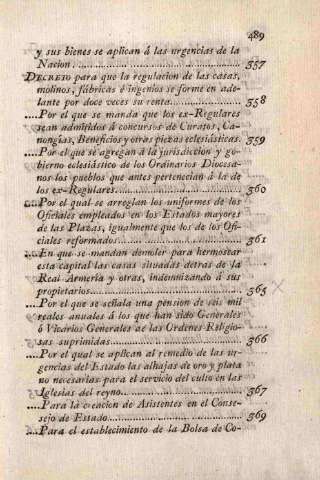 489
y sus bienes se aplican á las urgencias de la
Nacion. ........ 357
DECRETO para que la regulacion de las casas,
molinos, fábricas é ingenios se forme en ade-
lante por doce veces su renta. ........ 358
....Por el que se manda que los ex-Regulares
sean admitidos á concursos de Curatos, Ca-
nongías, Beneficios y otras piezas eclesiásticas. 359
....Por el que se agregan á la jurisdiccion y go-
bierno eclesiástico de los Ordinarios Diocesa-
nos los pueblos que antes pertenecian á la de
los ex-Regulares. ........ 360
....Por el qual se arreglan los uniformes de los
Oficiales empleados en los Estados mayores
de las Plazas, igualmente que los de los Ofi-
ciales reformados. ........ 361
....En que se mandan demoler para hermosear
esta capital las casas situadas detras de la
Real Armería y otras, indemnizando á sus
propietarios. ........ 365
....Por el que se señala una pension de seis mil
realos anuales á los que han sido Generales
ó Vicarios Generales de las Ordenes Religio-
sas suprimidas. ........ 366
....Por el qual se aplican al remedio de las ur-
gencias del Estado las alhajas de oro y plata
no necesarias para el servicio del culto en las
Iglesias del reyno. ........ 367
....Para la creacion de Asistentes en el Conse-
jo de Estado. ........ 369
....Para el establecimiento de la Bolsa de Co-